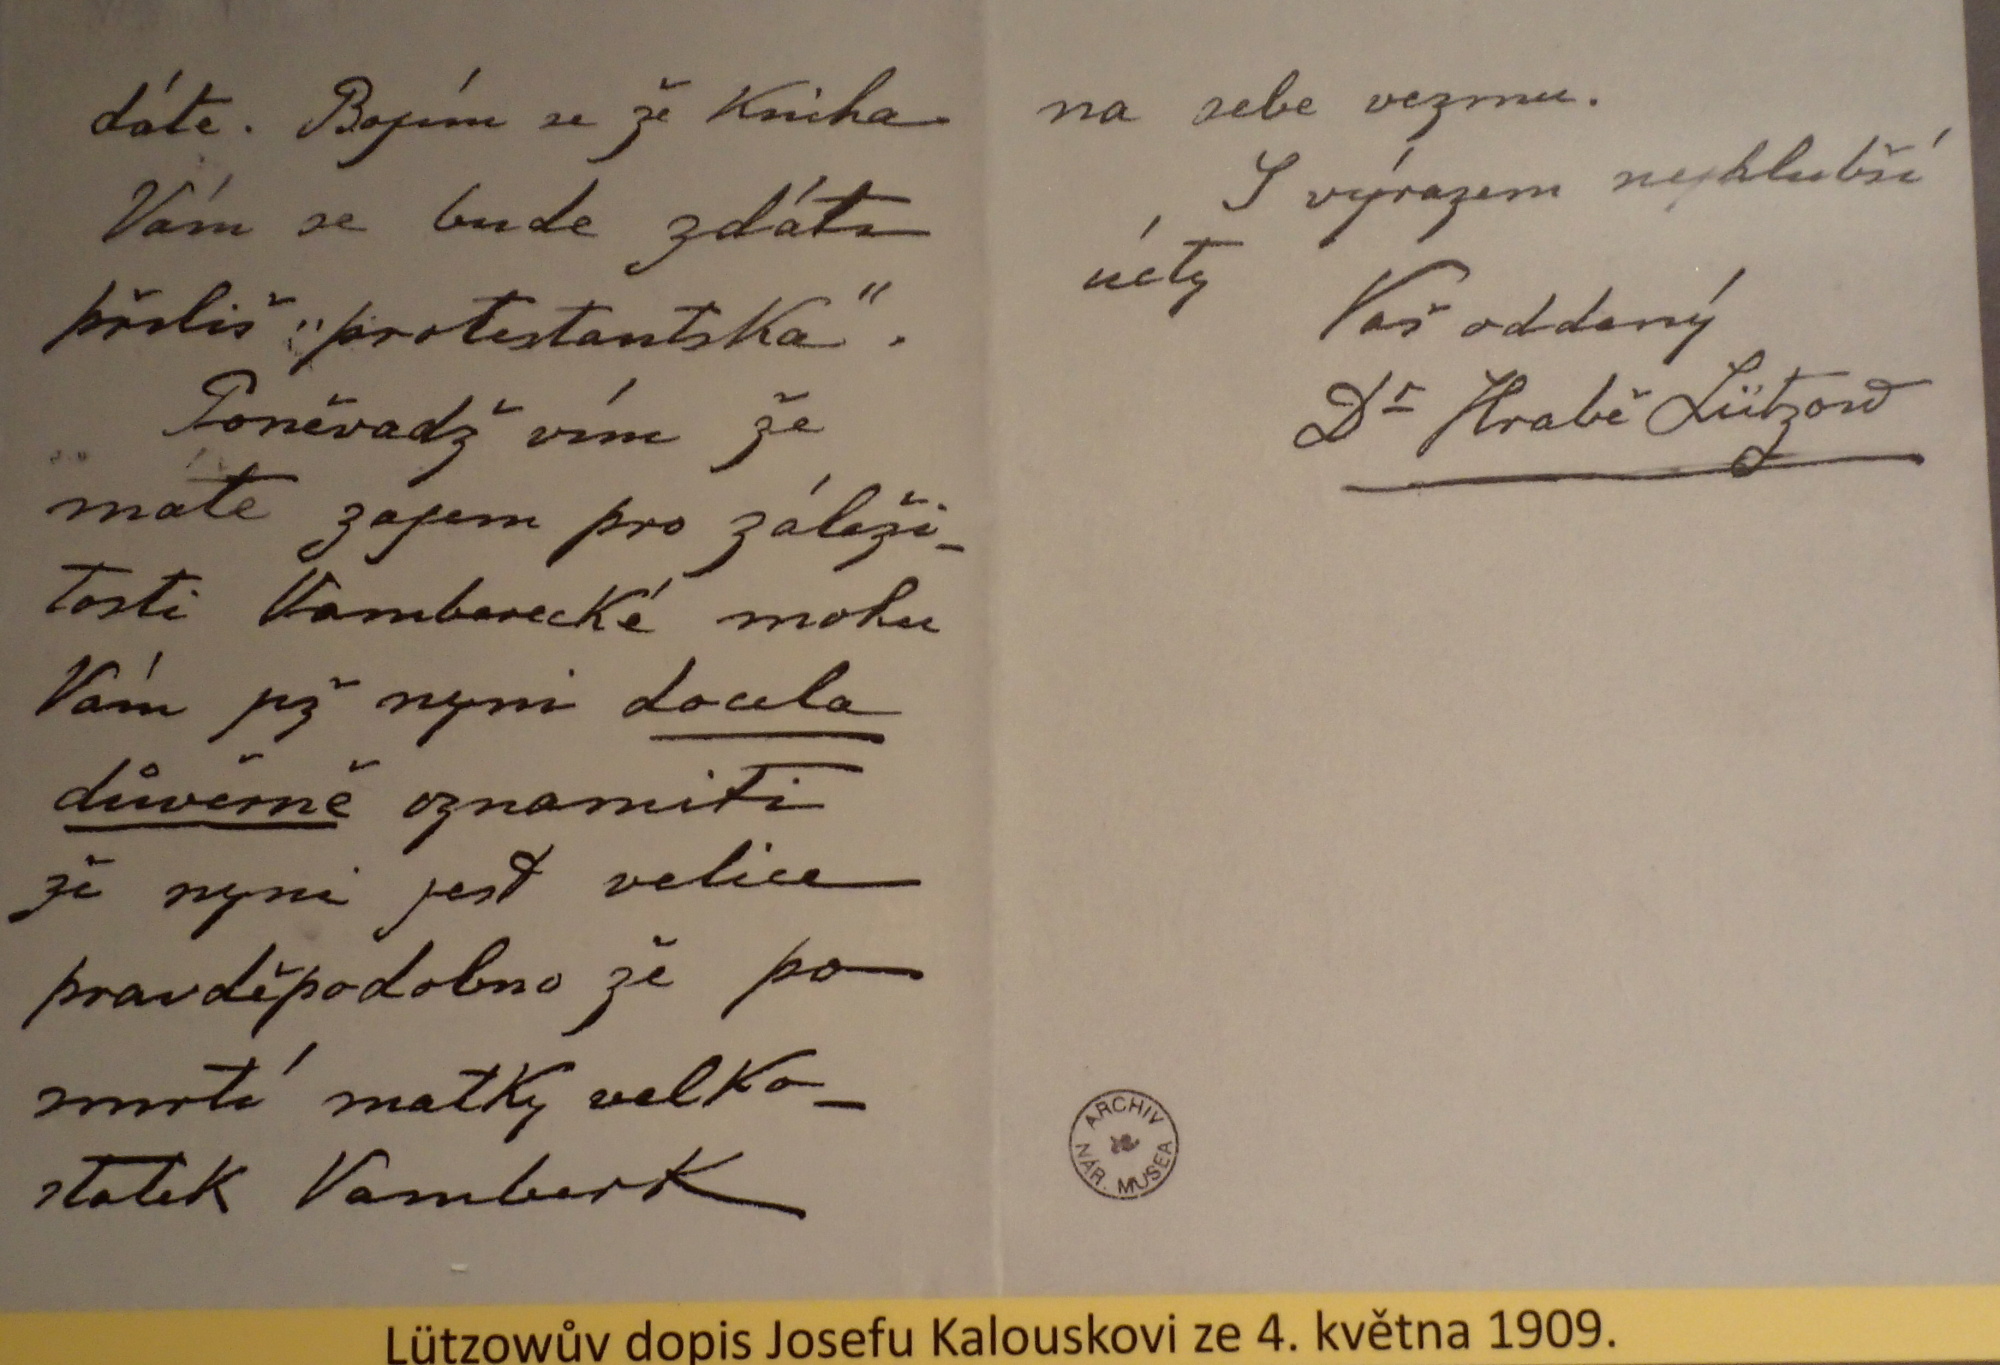 dáte. Bojím se že Kniha
Vám se bude zdáti
přiliš „protestantska“.
Poněvadž vím že
máte zajem pro záleži-
tosti Vamberecké mohu
Vám již nyni docela
důvěrně oznamiti
že nyni jest velice
pravděpodobno že po
smrti matky velko-
statek Vamberk
na sebe vezmu.
S výrazem nejhlubší
úcty
Váš oddaný
Dr Hrabě Lützow
ARCHIV
NÁR. MUSEA
Lützowův dopis Josefu Kalouskovi ze 4. května 1909.